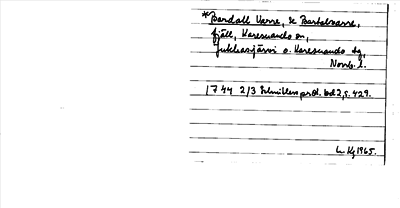 *Bardall Varre, se Bartalvarre,
fjäll, Karesuando sn,
Jukkasjärvi o. Karesuando tg,
Norrb. l.
1744 2/3 Schnitlers prot. bd 2, s. 429.
1965.